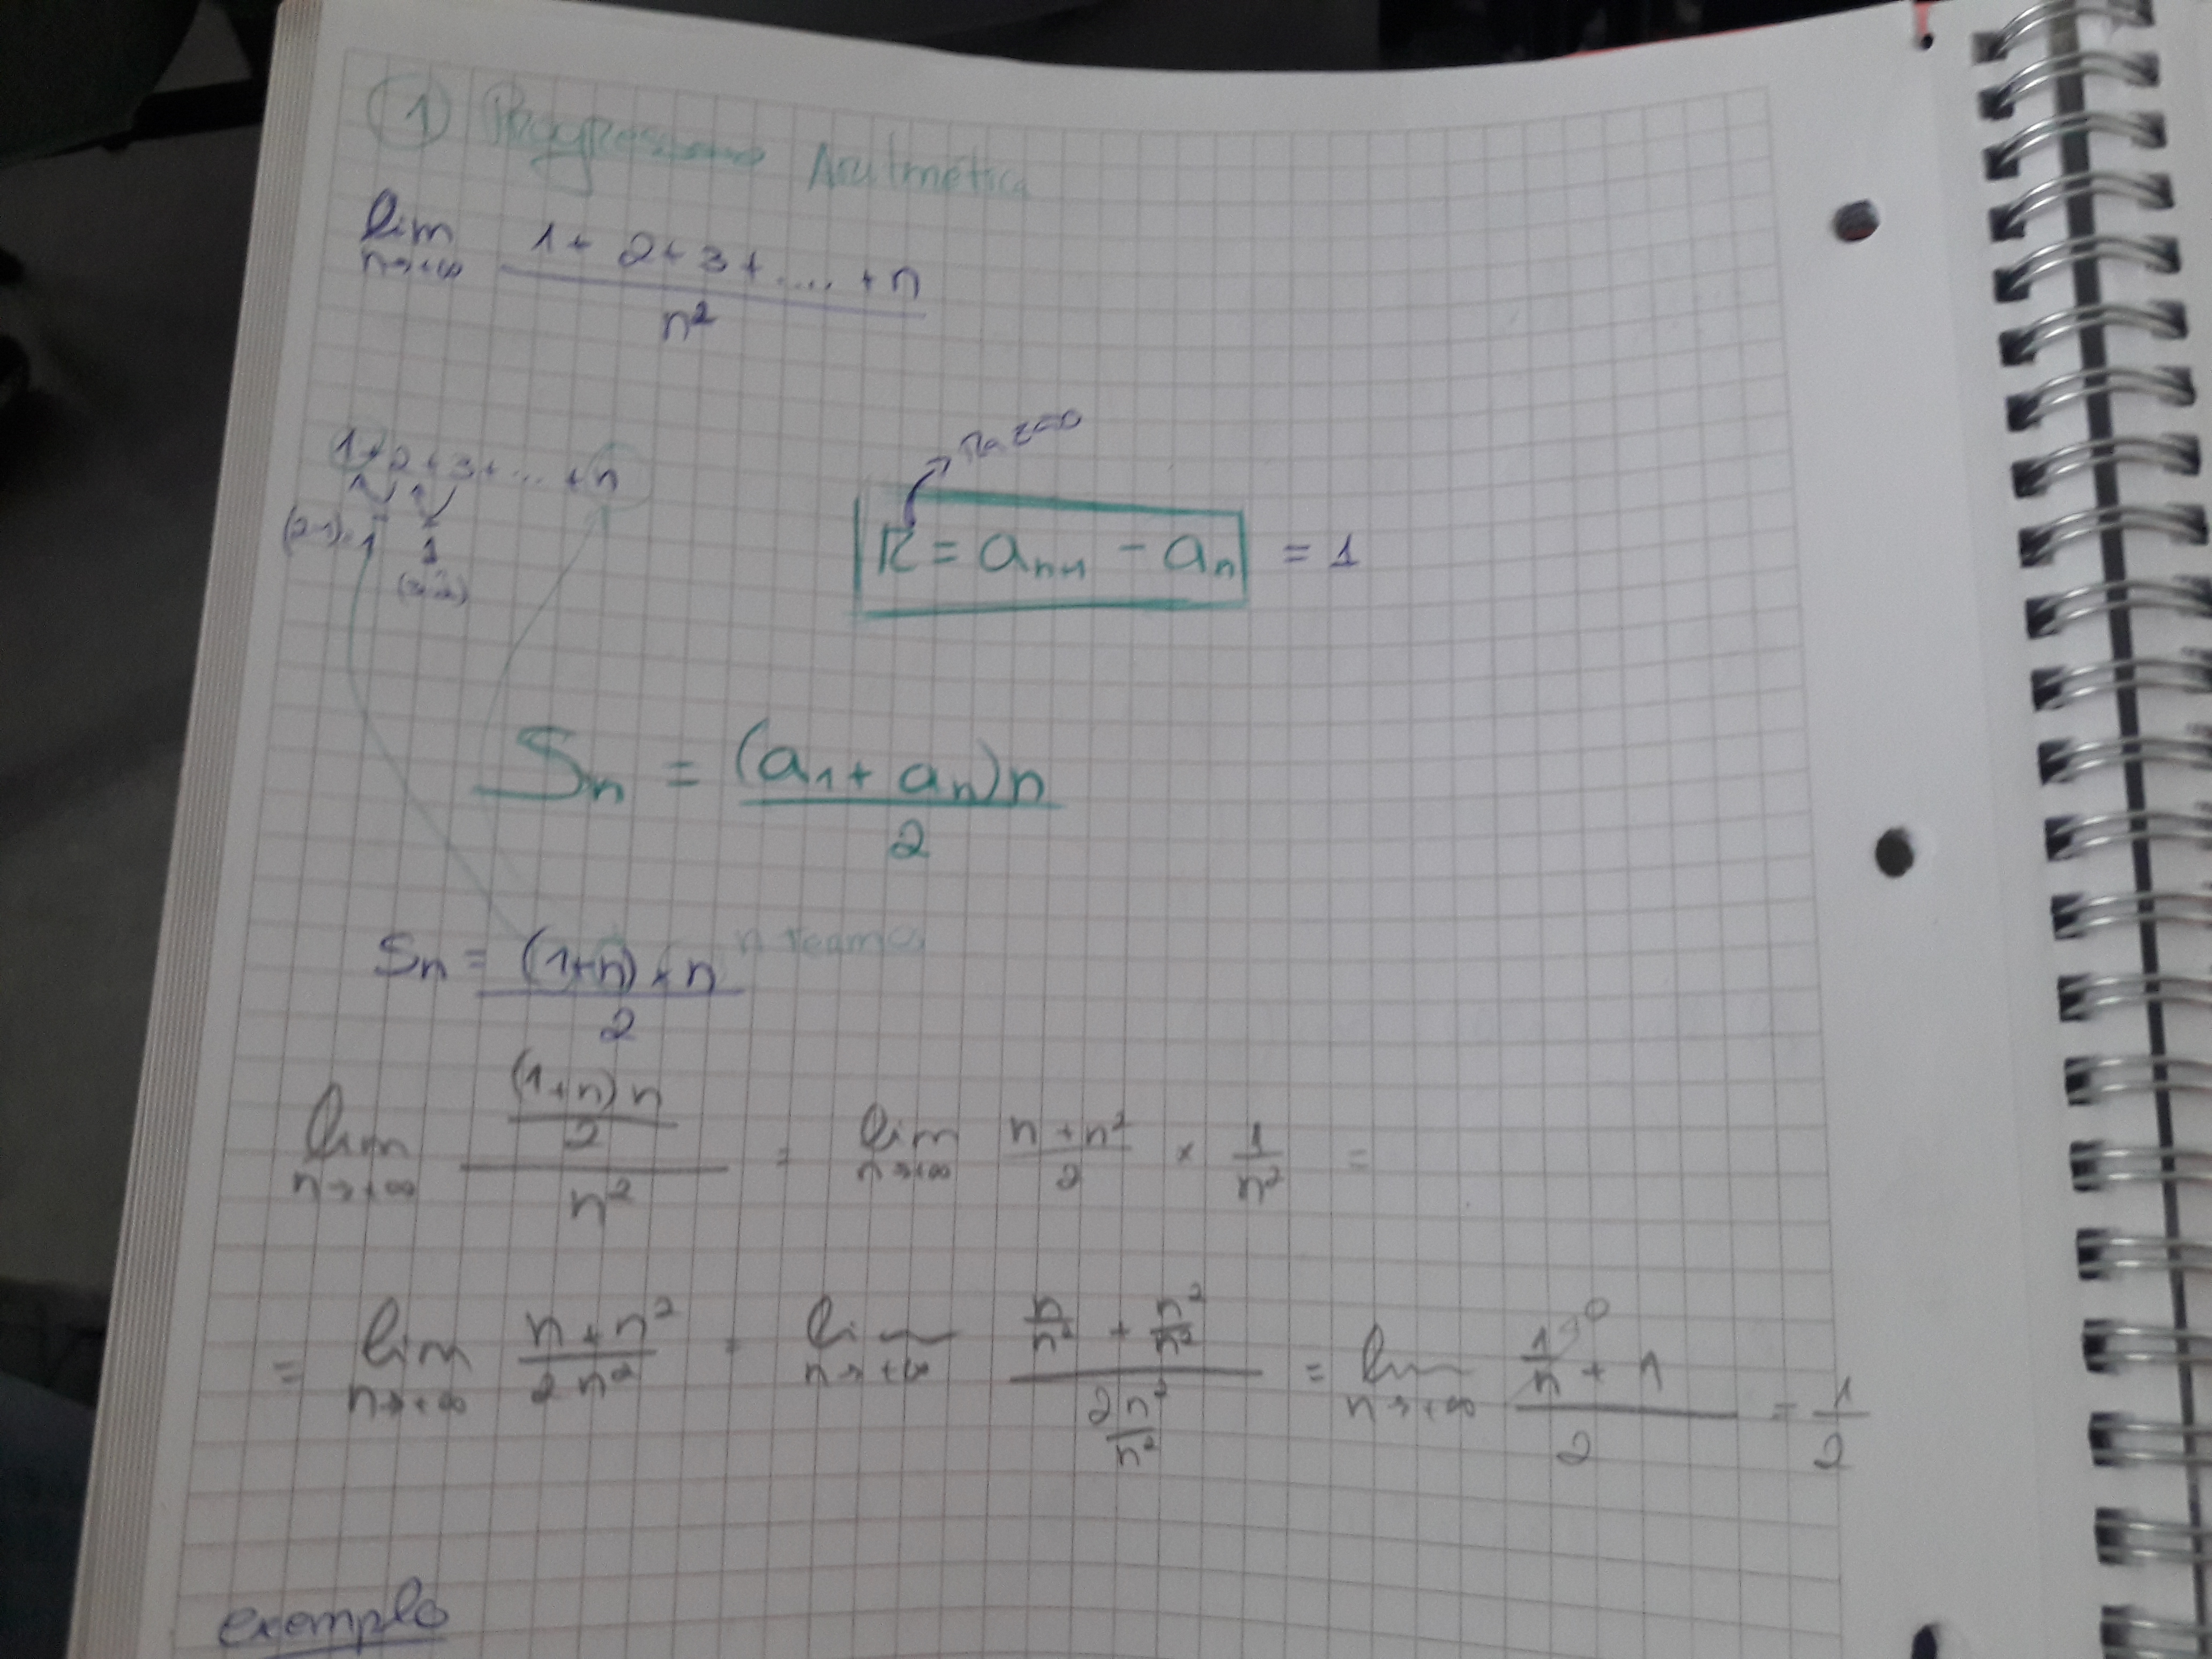 ① Progressão Aritmética
lim n→+∞ (1+2+3+....+n)/n²
1+2+3+...+n
(2-1)=1 1 (3-2)
Razão
R = aₙ₊₁ - aₙ = 1
Sₙ = (a₁+aₙ)n/2
Sₙ = (1+n)×n/2 n termos
lim n→+∞ ((1+n)n/2)/n² = lim n→+∞ (n+n²)/2 × 1/n² =
= lim n→+∞ (n+n²)/2n² = lim n→+∞ (n/n² + n²/n²)/(2n²/n²) = lim n→+∞ (1/n→0 + 1)/2 = 1/2
exemplo